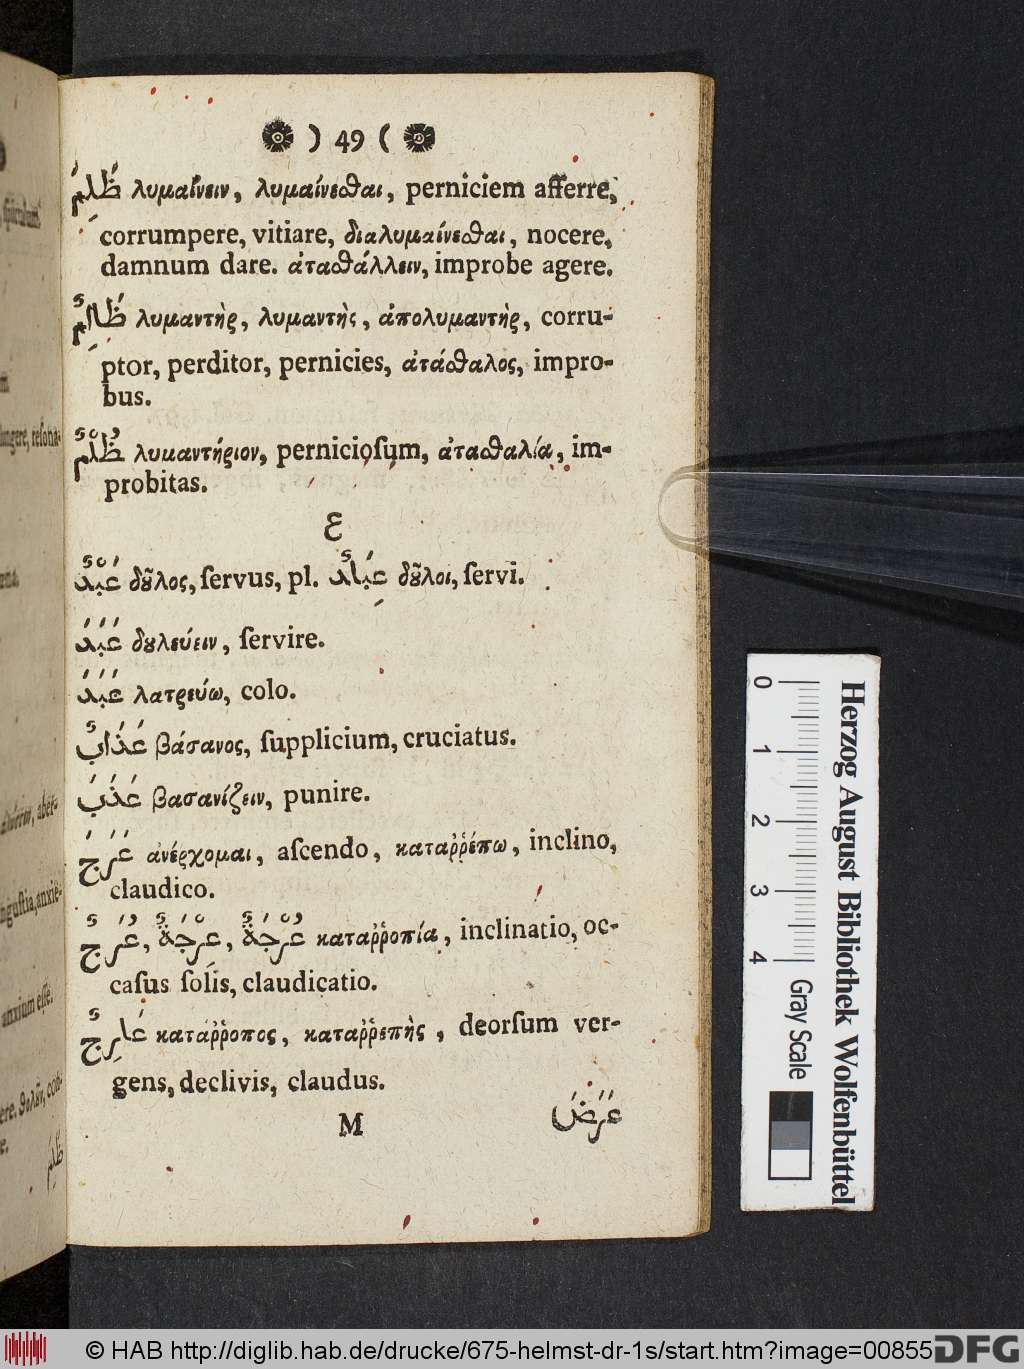 ) 49 (
ظَلَمَ λυμαίνειν, λυμαίνεσθαι, perniciem afferre,
corrumpere, vitiare, διαλυμαίνεσθαι, nocere,
damnum dare. ἀτασθάλλειν, improbe agere.
ظَالِمٌ λυμαντὴρ, λυμαντὴς, ἀπολυμαντὴρ, corru-
ptor, perditor, pernicies, ἀτάσθαλος, impro-
bus.
ظُلْمٌ λυμαντήριον, pernicioſum, ἀτασθαλία, im-
probitas.
ع
عَبْدٌ δȣ͂λος, ſervus, pl. عَبِادٌ δȣ͂λοι, ſervi.
عَبَدَ δȣλεύειν, ſervire.
عَبَدَ λατρεύω, colo.
عَذَابٌ βάσανος, ſupplicium, cruciatus.
عَذَبَ βασανίζειν, punire.
عَرَجَ ἀνέρχομαι, aſcendo, καταῤῥέπω, inclino,
claudico.
عَرَجٌ, عَرْجَةٌ, عُرْجَةٌ καταῤῥοπία, inclinatio, oc-
caſus ſolis, claudicatio.
عَارِجٌ κατάῤῥοπος, καταῤῥεπὴς, deorſum ver-
gens, declivis, claudus.
M عَرَضَ
0 1 2 3 4
Gray Scale
Herzog August Bibliothek Wolfenbüttel
© HAB http://diglib.hab.de/drucke/675-helmst-dr-1s/start.htm?image=00855
DFG